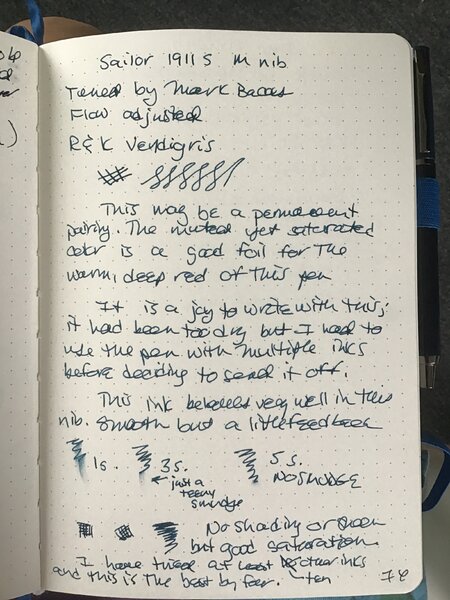 Sailor 1911 S M nib
Tuned by Mark Bacas
Flow adjusted
R&K Verdigris
This may be a permanent
pairing. The muted yet saturated
color is a good foil for the
warm, deep red of this pen
It is a joy to write with this;
it had been too dry but I had to
use the pen with multiple inks
before deciding to send it off.
This ink behaves very well in this
nib. Smooth but a little feedback
1s. 3s. 5s.
just a
teeny
smudge
No SMUDGE
No shading or sheen
but good saturation
I have tried at least other inks
and this is the best by far. ten